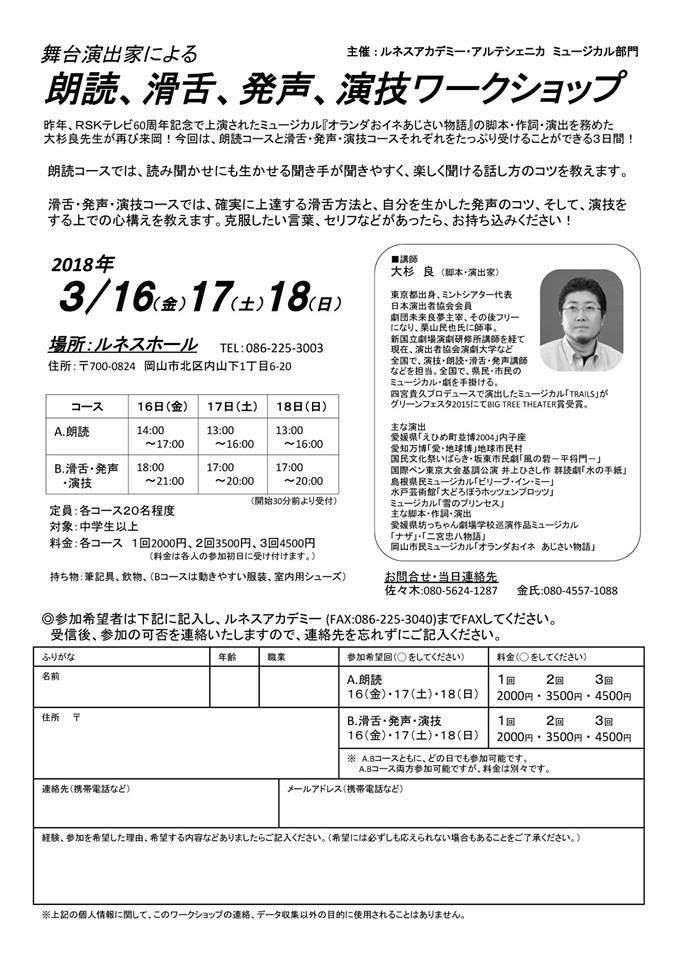 舞台演出家による
主催:ルネスアカデミー・アルテシェニカ ミュージカル部門
朗読、滑舌、発声、演技ワークショップ
昨年、RSKテレビ60周年記念で上演されたミュージカル『オランダおイネあじさい物語』の脚本・作詞・演出を務めた
大杉良先生が再び来岡!今回は、朗読コースと滑舌・発声・演技コースそれぞれをたっぷり受けることができる3日間!
朗読コースでは、読み聞かせにも生かせる聞き手が聞きやすく、楽しく聞ける話し方のコツを教えます。
滑舌・発声・演技コースでは、確実に上達する滑舌方法と、自分を生かした発声のコツ、そして、演技を
する上での心構えを教えます。克服したい言葉、セリフなどがあったら、お持ち込みください!
2018年
3/16(金)17(土)18(日)
場所:ルネスホール TEL:086-225-3003
住所:〒700-0824 岡山市北区内山下1丁目6-20
コース 16日(金) 17日(土) 18日(日)
A.朗読 14:00~17:00 13:00~16:00 13:00~16:00
B.滑舌・発声・演技 18:00~21:00 17:00~20:00 17:00~20:00
(開始30分前より受付)
定員:各コース20名程度
対象:中学生以上
料金:各コース 1回2000円、2回3500円、3回4500円
(料金は各人の参加初日に受け付けます。)
持ち物:筆記具、飲物、(Bコースは動きやすい服装、室内用シューズ)
■講師
大杉 良(脚本・演出家)
東京都出身、ミントシアター代表
日本演出者協会会員
劇団未来良夢主宰、その後フリー
になり、栗山民也氏に師事。
新国立劇場演劇研修所講師を経て
現在、演出者協会演劇大学など
全国で、演技・朗読・滑舌・発声講師
などを担当。全国で、県民・市民の
ミュージカル・劇を手掛ける。
四宮貴久プロデュースで演出したミュージカル「TRAILS」が
グリーンフェスタ2015にてBIG TREE THEATER賞受賞。
主な演出
愛媛県「えひめ町並博2004」内子座
愛知万博「愛・地球博」地球市民村
国民文化祭いばらき・坂東市民劇「風の砦-平将門-」
国際ペン東京大会基調公演 井上ひさし作 群読劇「水の手紙」
島根県民ミュージカル「ビリーブ・イン・ミー」
水戸芸術館「大どろぼうホッツェンプロッツ」
ミュージカル「雪のプリンセス」
主な脚本・作詞・演出
愛媛県坊っちゃん劇場学校巡演作品ミュージカル
「ナザ」・「二宮忠八物語」
岡山市民ミュージカル「オランダおイネ あじさい物語」
お問合せ・当日連絡先
佐々木:080-5624-1287 金氏:080-4557-1088
◎参加希望者は下記に記入し、ルネスアカデミー (FAX:086-225-3040)までFAXしてください。
受信後、参加の可否を連絡いたしますので、連絡先を忘れずにご記入ください。
ふりがな 年齢 職業 参加希望回(○をしてください) 料金(○をしてください)
名前
A.朗読
16(金)・17(土)・18(日)
1回 2回 3回
2000円・3500円・4500円
住所 〒
B.滑舌・発声・演技
16(金)・17(土)・18(日)
1回 2回 3回
2000円・3500円・4500円
※ A.Bコースともに、どの日でも参加可能です。
A.Bコース両方参加可能ですが、料金は別々です。
連絡先(携帯電話など) メールアドレス(携帯電話など)
経験、参加を希望した理由、希望する内容などありましたらご記入ください。(希望には必ずしも応えられない場合もあることをご了承ください。)
※上記の個人情報に関して、このワークショップの連絡、データ収集以外の目的に使用されることはありません。